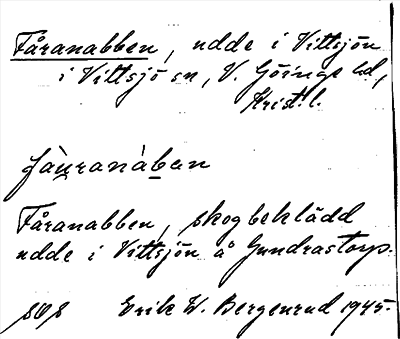 Fåranabben, udde i Vittsjön
i Vittsjö sn, V. Göinge hd,
Krist. l.
fàu̲ranàb̲en
Fåranabben, skogbeklädd
udde i Vittsjön å Gundrastorp.
Erik W. Bergenrud 1945.